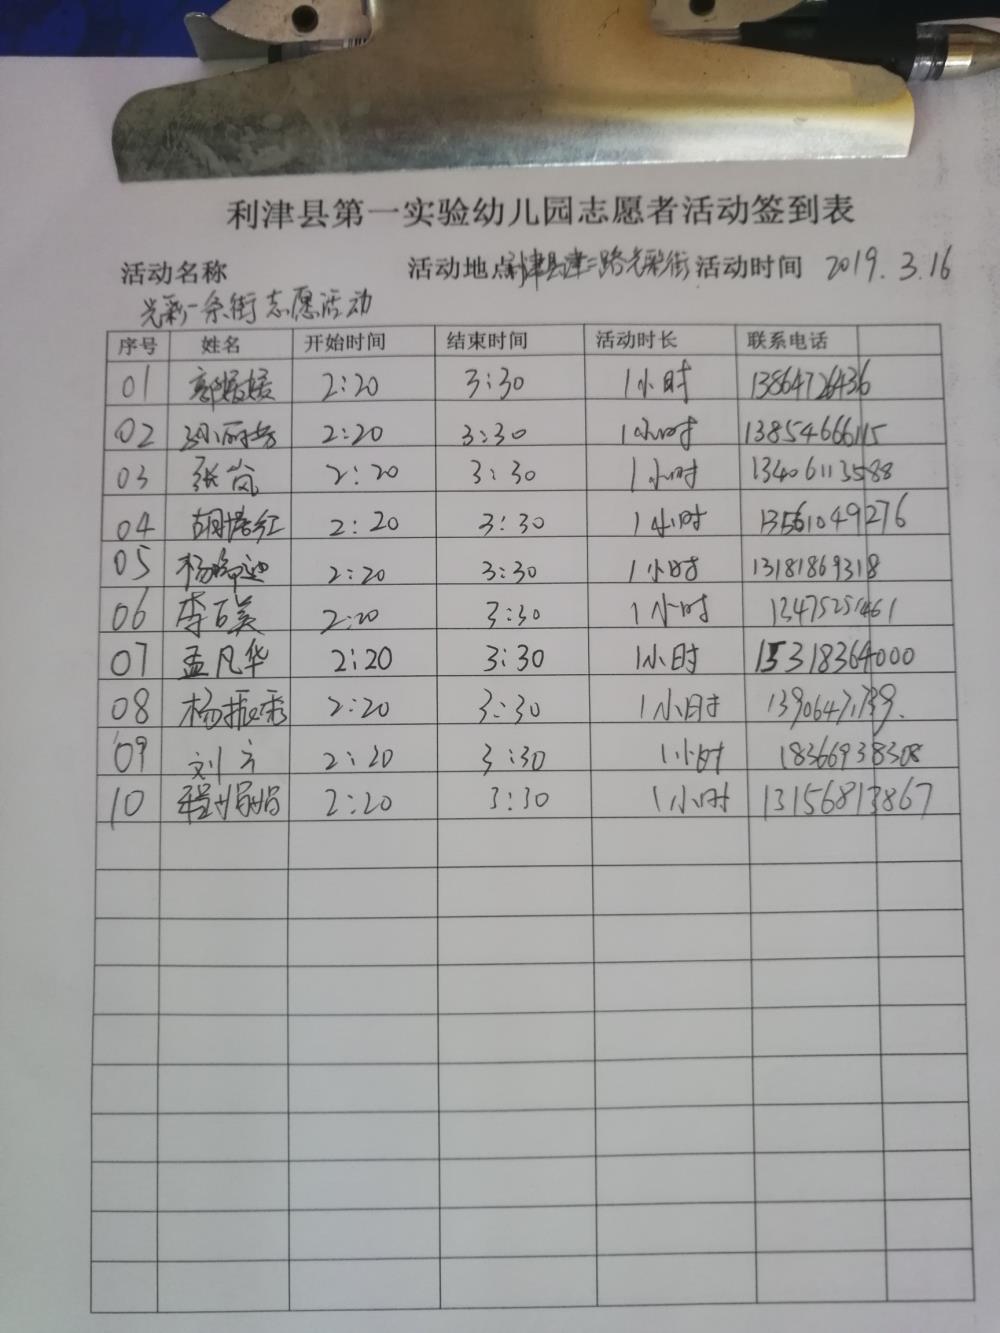 利津县第一实验幼儿园志愿者活动签到表
活动名称 活动地点利津县津二路光彩街 活动时间 2019.3.16
光彩一条街志愿活动
序号 姓名 开始时间 结束时间 活动时长 联系电话
01 郭媛媛 2:20 3:30 1小时 13864726436
02 2:20 3:30 1小时 13854666115
03 张岚 2:20 3:30 1小时 13406113588
04 2:20 3:30 1小时 13561049276
05 2:20 3:30 1小时 13181869318
06 李百英 2:20 3:30 1小时 13475251461
07 孟凡华 2:20 3:30 1小时 15318364000
08 杨振秀 2:20 3:30 1小时
09 刘方 2:20 3:30 1小时 18366938308
10 程娟娟 2:20 3:30 1小时 13156813867